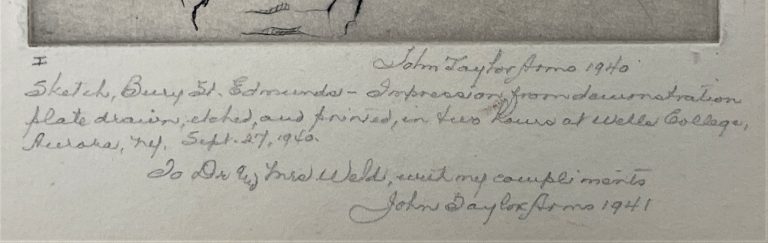 I
John Taylor Arms 1940
Sketch, Bury St. Edmunds - Impression from demonstration
plate drawn, etched, and printed, in two hours at Wells College,
Aurora, N.Y. Sept. 27, 1940.
To Dr & Mrs Weld, with my compliments
John Taylor Arms 1941